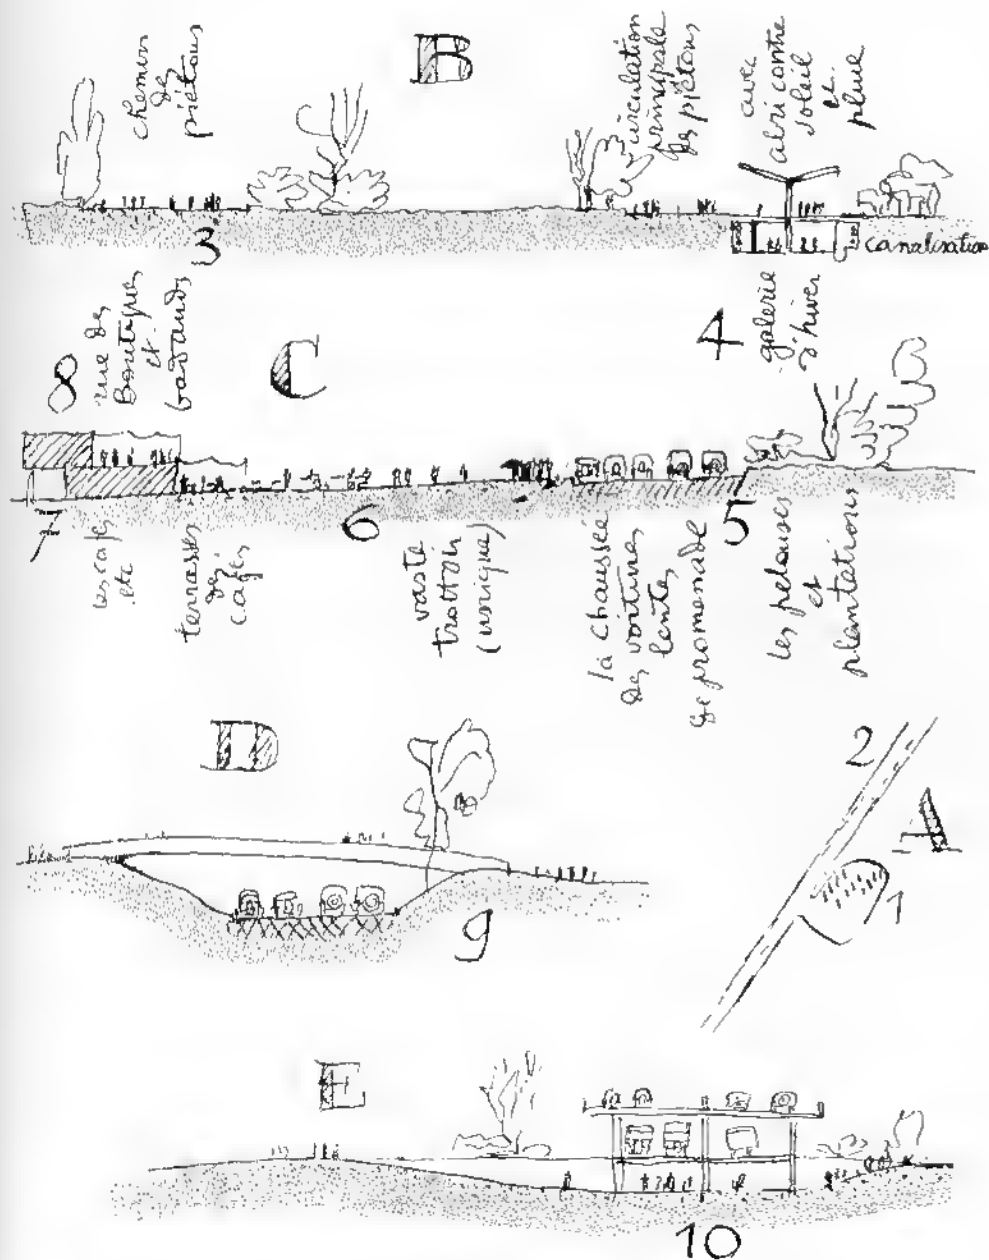 B
chemin
des
piétons
circulation
principale
des piétons
avec
abri contre
soleil
et
pluie
3
canalisation
4
galerie
d'hiver
8
rue des
Boutiques
et
badauds
C
7
les cafés
etc
terrasses
des
cafés
6
vaste
trottoir
(unique)
la chaussée
des voitures
lentes
de promenade
5
les pelouses
et
plantations
D
9
2
A
1
E
10